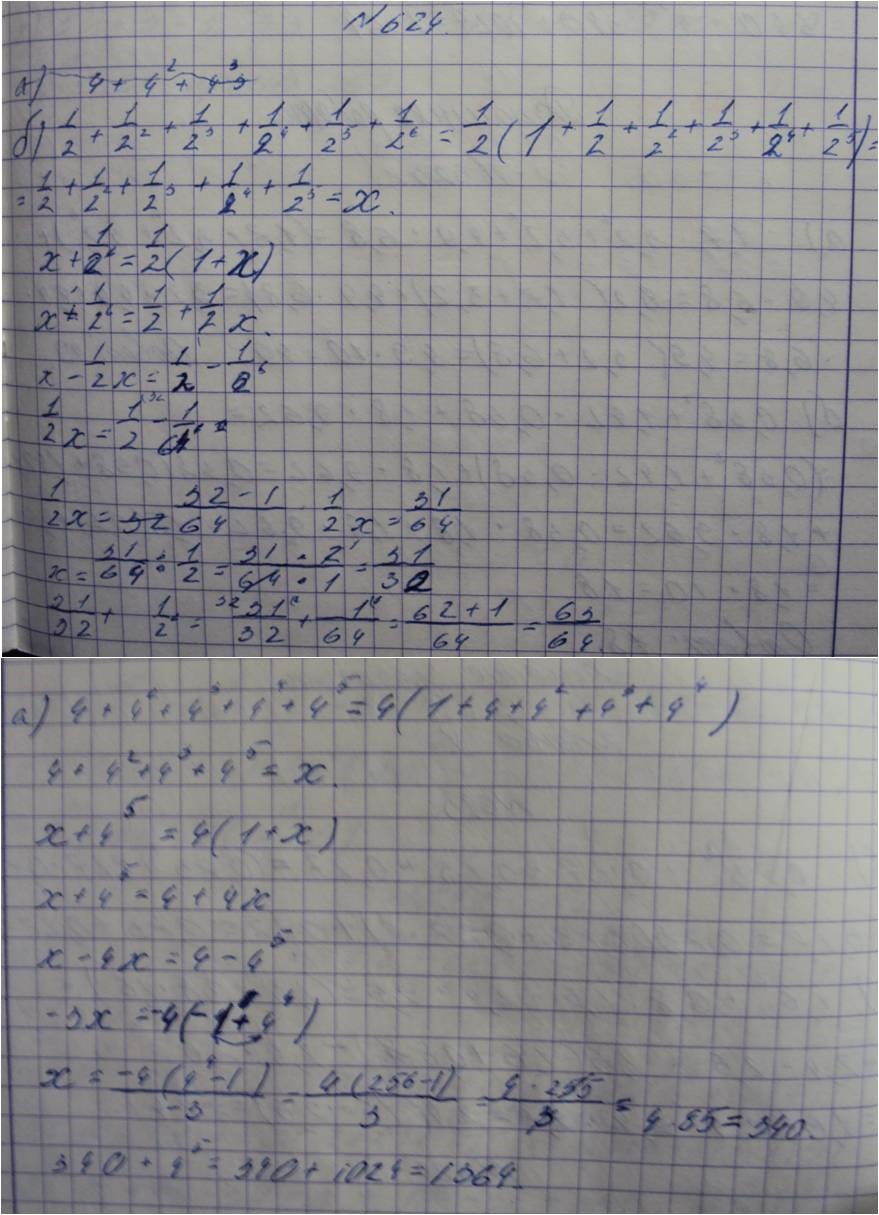 №624.
а) 4 + 4² + 4³
б) 1/2 + 1/2² + 1/2³ + 1/2⁴ + 1/2⁵ + 1/2⁶ = 1/2 (1 + 1/2 + 1/2² + 1/2³ + 1/2⁴ + 1/2⁵) =
= 1/2 + 1/2² + 1/2³ + 1/2⁴ + 1/2⁵ = x.
x + 1/2⁶ = 1/2 (1 + x)
x + 1/2⁶ = 1/2 + 1/2 x.
x - 1/2 x = 1/2 - 1/2⁶
1/2 x = 1/2 - 1/64
1/2 x = (32 - 1)/64   1/2 x = 31/64
x = 31/64 : 1/2 = (31 · 2)/(64 · 1) = 31/32
31/32 + 1/2⁶ = 31/32 + 1/64 = (62 + 1)/64 = 63/64.
а) 4 + 4² + 4³ + 4⁴ + 4⁵ = 4 (1 + 4 + 4² + 4³ + 4⁴)
4 + 4² + 4³ + 4⁵ = x.
x + 4⁵ = 4 (1 + x)
x + 4⁵ = 4 + 4x
x - 4x = 4 - 4⁵
-3x = -4 (-1 + 4⁴)
x = -4 (4⁴ - 1)/-3 = 4 (256 - 1)/3 = 4 · 255/3 = 4 · 85 = 340.
340 + 4⁵ = 340 + 1024 = 1364.